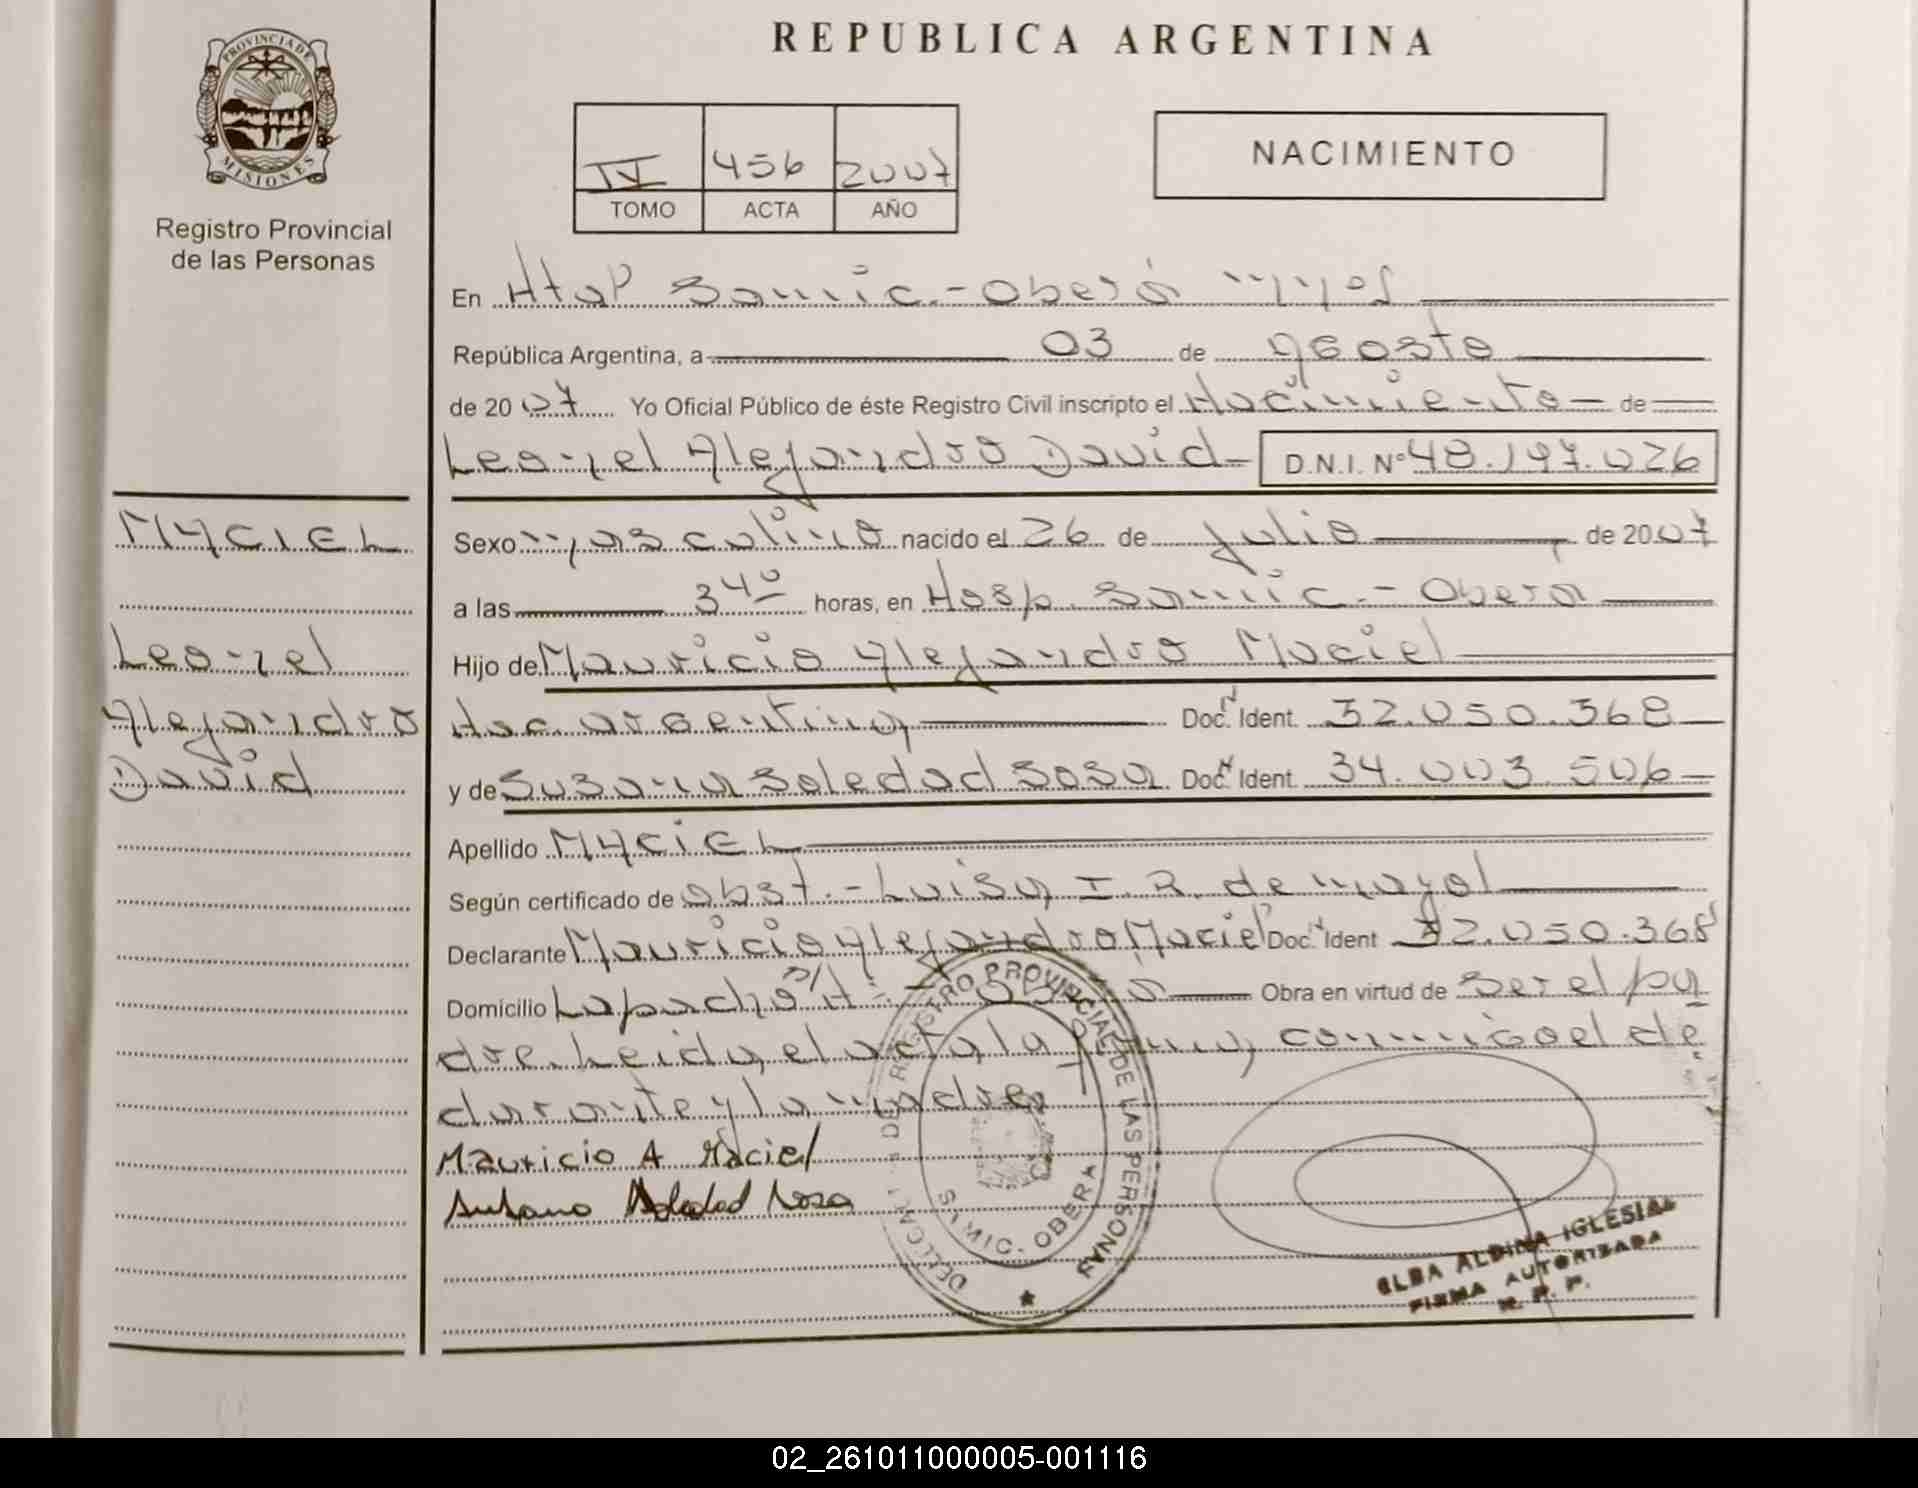 PROVINCIA DE
MISIONES
Registro Provincial
de las Personas
REPUBLICA ARGENTINA
IV 456 2007
TOMO ACTA AÑO
NACIMIENTO
En Htal Samic - Oberá
República Argentina, a 03 de Agosto
de 2007 Yo Oficial Público de éste Registro Civil inscripto el Nacimiento de
Leonel Alejandro David D.N.I. Nº 48.197.026
MACIEL
Leonel
Alejandro
David
Sexo masculino nacido el 26 de Julio de 2007
a las 3 40 horas, en Hosp. Samic - Oberá
Hijo de Mauricio Alejandro Maciel
Nac. argentina Doc. Ident. 32.050.368
y de Susana Soledad Sosa Doc. Ident. 34.003.506
Apellido MACIEL
Según certificado de obst. - Luisa I. R. de mayol
Declarante Mauricio Alejandro Maciel Doc. Ident 32.050.368
Domicilio Lapacho s/n Oberá Obra en virtud de ser el pa
dre. Leida el acta la firma conmigo el de
clarante y la madre
Mauricio A Maciel
Susana Soledad Sosa
REGISTRO PROVINCIAL DE LAS PERSONAS
SAMIC - OBERA
ELBA ALDINA IGLESIAS
FIRMA AUTORIZADA
R. P. P.
02_261011000005-001116